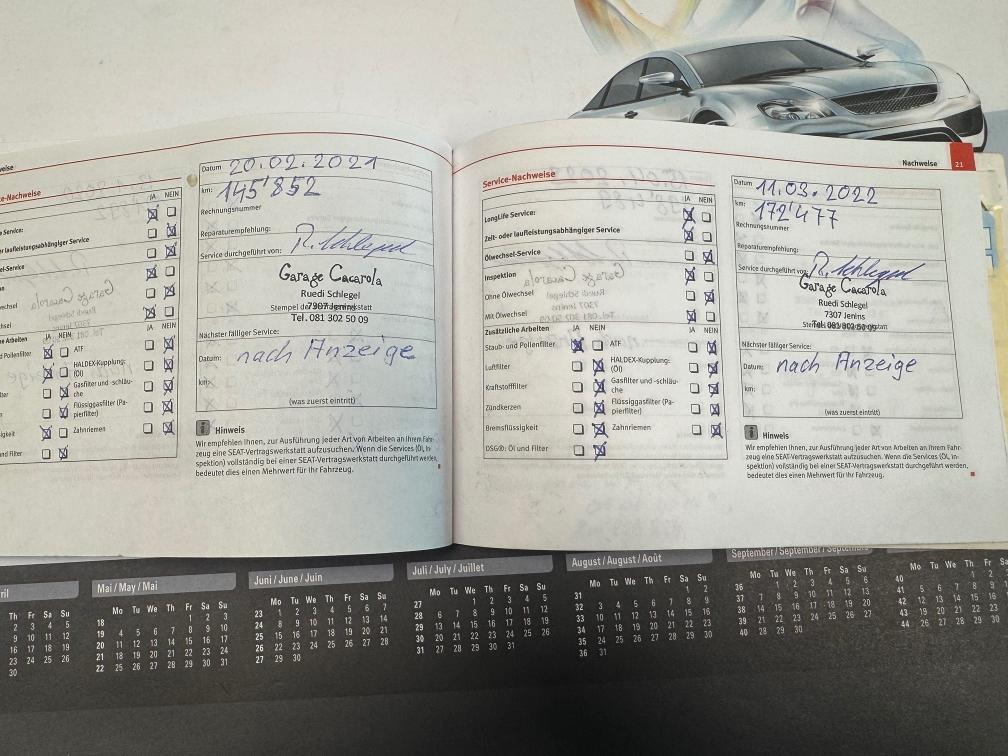 weise
e-Nachweise
JA NEIN
e Service:
er laufleistungsabhängiger Service
sel-Service
n
wechsel
sel
he Arbeiten JA NEIN JA NEIN
d Pollenfilter ATF
HALDEX-Kupplung:
(Öl)
lter Gasfilter und -schläu-
che
n Flüssiggasfilter (Pa-
pierfilter)
sigkeit Zahnriemen
und Filter
Datum 20.02.2021
km: 145'852
Rechnungsnummer
Reparaturempfehlung:
Service durchgeführt von: R. Schlegel
Garage Cacarola
Ruedi Schlegel
7307 Jenins
Tel. 081 302 50 09
Nächster fälliger Service:
Datum: nach Anzeige
km:
(was zuerst eintritt)
i Hinweis
Wir empfehlen Ihnen, zur Ausführung jeder Art von Arbeiten an Ihrem Fahr-
zeug eine SEAT-Vertragswerkstatt aufzusuchen. Wenn die Services (Öl, In-
spektion) vollständig bei einer SEAT-Vertragswerkstatt durchgeführt werden,
bedeutet dies einen Mehrwert für Ihr Fahrzeug.
Nachweise 21
Service-Nachweise
JA NEIN
LongLife Service:
Zeit- oder laufleistungsabhängiger Service
Ölwechsel-Service
Inspektion
Ohne Ölwechsel
Mit Ölwechsel
Zusätzliche Arbeiten JA NEIN JA NEIN
Staub- und Pollenfilter ATF
Luftfilter HALDEX-Kupplung:
(Öl)
Kraftstofffilter Gasfilter und -schläu-
che
Zündkerzen Flüssiggasfilter (Pa-
pierfilter)
Bremsflüssigkeit Zahnriemen
DSG®: Öl und Filter
Datum 11.03.2022
km: 172'477
Rechnungsnummer
Reparaturempfehlung:
Service durchgeführt von: R. Schlegel
Garage Cacarola
Ruedi Schlegel
7307 Jenins
Tel. 081 302 50 09
Nächster fälliger Service:
Datum: nach Anzeige
km:
(was zuerst eintritt)
i Hinweis
Wir empfehlen Ihnen, zur Ausführung jeder Art von Arbeiten an Ihrem Fahr-
zeug eine SEAT-Vertragswerkstatt aufzusuchen. Wenn die Services (Öl, In-
spektion) vollständig bei einer SEAT-Vertragswerkstatt durchgeführt werden,
bedeutet dies einen Mehrwert für Ihr Fahrzeug.
ril
Th Fr Sa Su
2 3 4 5
9 10 11 12
16 17 18 19
23 24 25 26
30
Mai / May / Mai
Mo Tu We Th Fr Sa Su
18 1 2 3
19 4 5 6 7 8 9 10
20 11 12 13 14 15 16 17
21 18 19 20 21 22 23 24
22 25 26 27 28 29 30 31
Juni / June / Juin
Mo Tu We Th Fr Sa Su
23 1 2 3 4 5 6 7
24 8 9 10 11 12 13 14
25 15 16 17 18 19 20 21
26 22 23 24 25 26 27 28
27 29 30
Juli / July / Juillet
Mo Tu We Th Fr Sa Su
27 1 2 3 4 5
28 6 7 8 9 10 11 12
29 13 14 15 16 17 18 19
30 20 21 22 23 24 25 26
31 27 28 29 30 31
August / August / Août
Mo Tu We Th Fr Sa Su
31 1 2
32 3 4 5 6 7 8 9
33 10 11 12 13 14 15 16
34 17 18 19 20 21 22 23
35 24 25 26 27 28 29 30
36 31
September / September / Septembre
Mo Tu We Th Fr Sa Su
36 1 2 3 4 5 6
37 7 8 9 10 11 12 13
38 14 15 16 17 18 19 20
39 21 22 23 24 25 26 27
40 28 29 30
Mo Tu We Th Fr
40 1 2
41 5 6 7 8 9
42 12 13 14 15 16
43 19 20 21 22 23
44 26 27 28 29 30